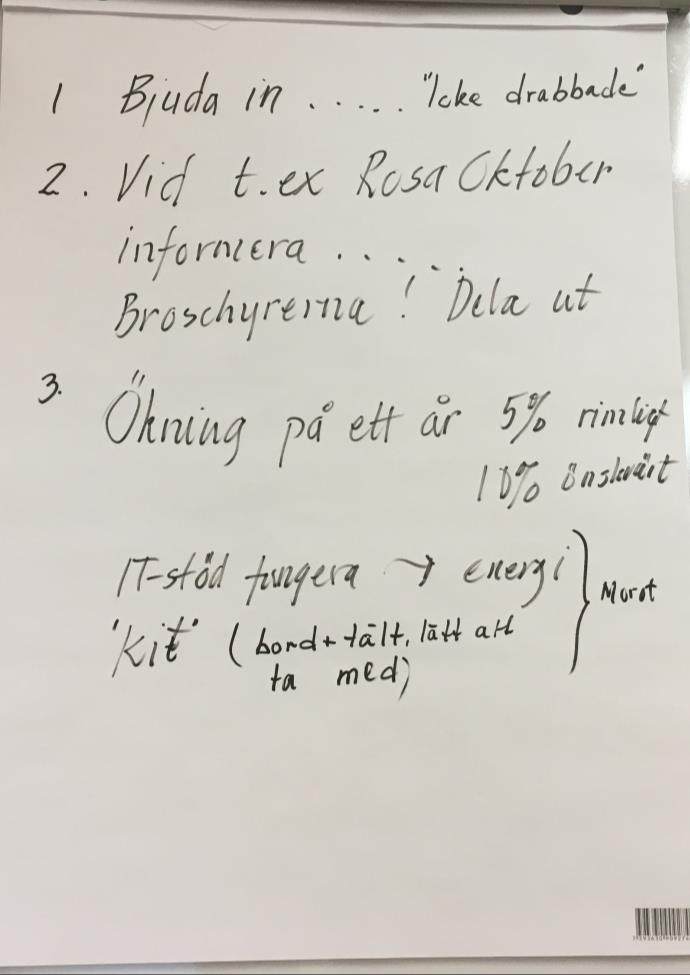 1 Bjuda in ..... "Icke drabbade"
2. Vid t.ex Rosa Oktober
informera .....
Broschyrerna! Dela ut
3. Ökning på ett år 5% rimligt
10% önskvärt
IT-stöd fungera → energi
'Kit' (bord + tält, lätt att
ta med)
Morot